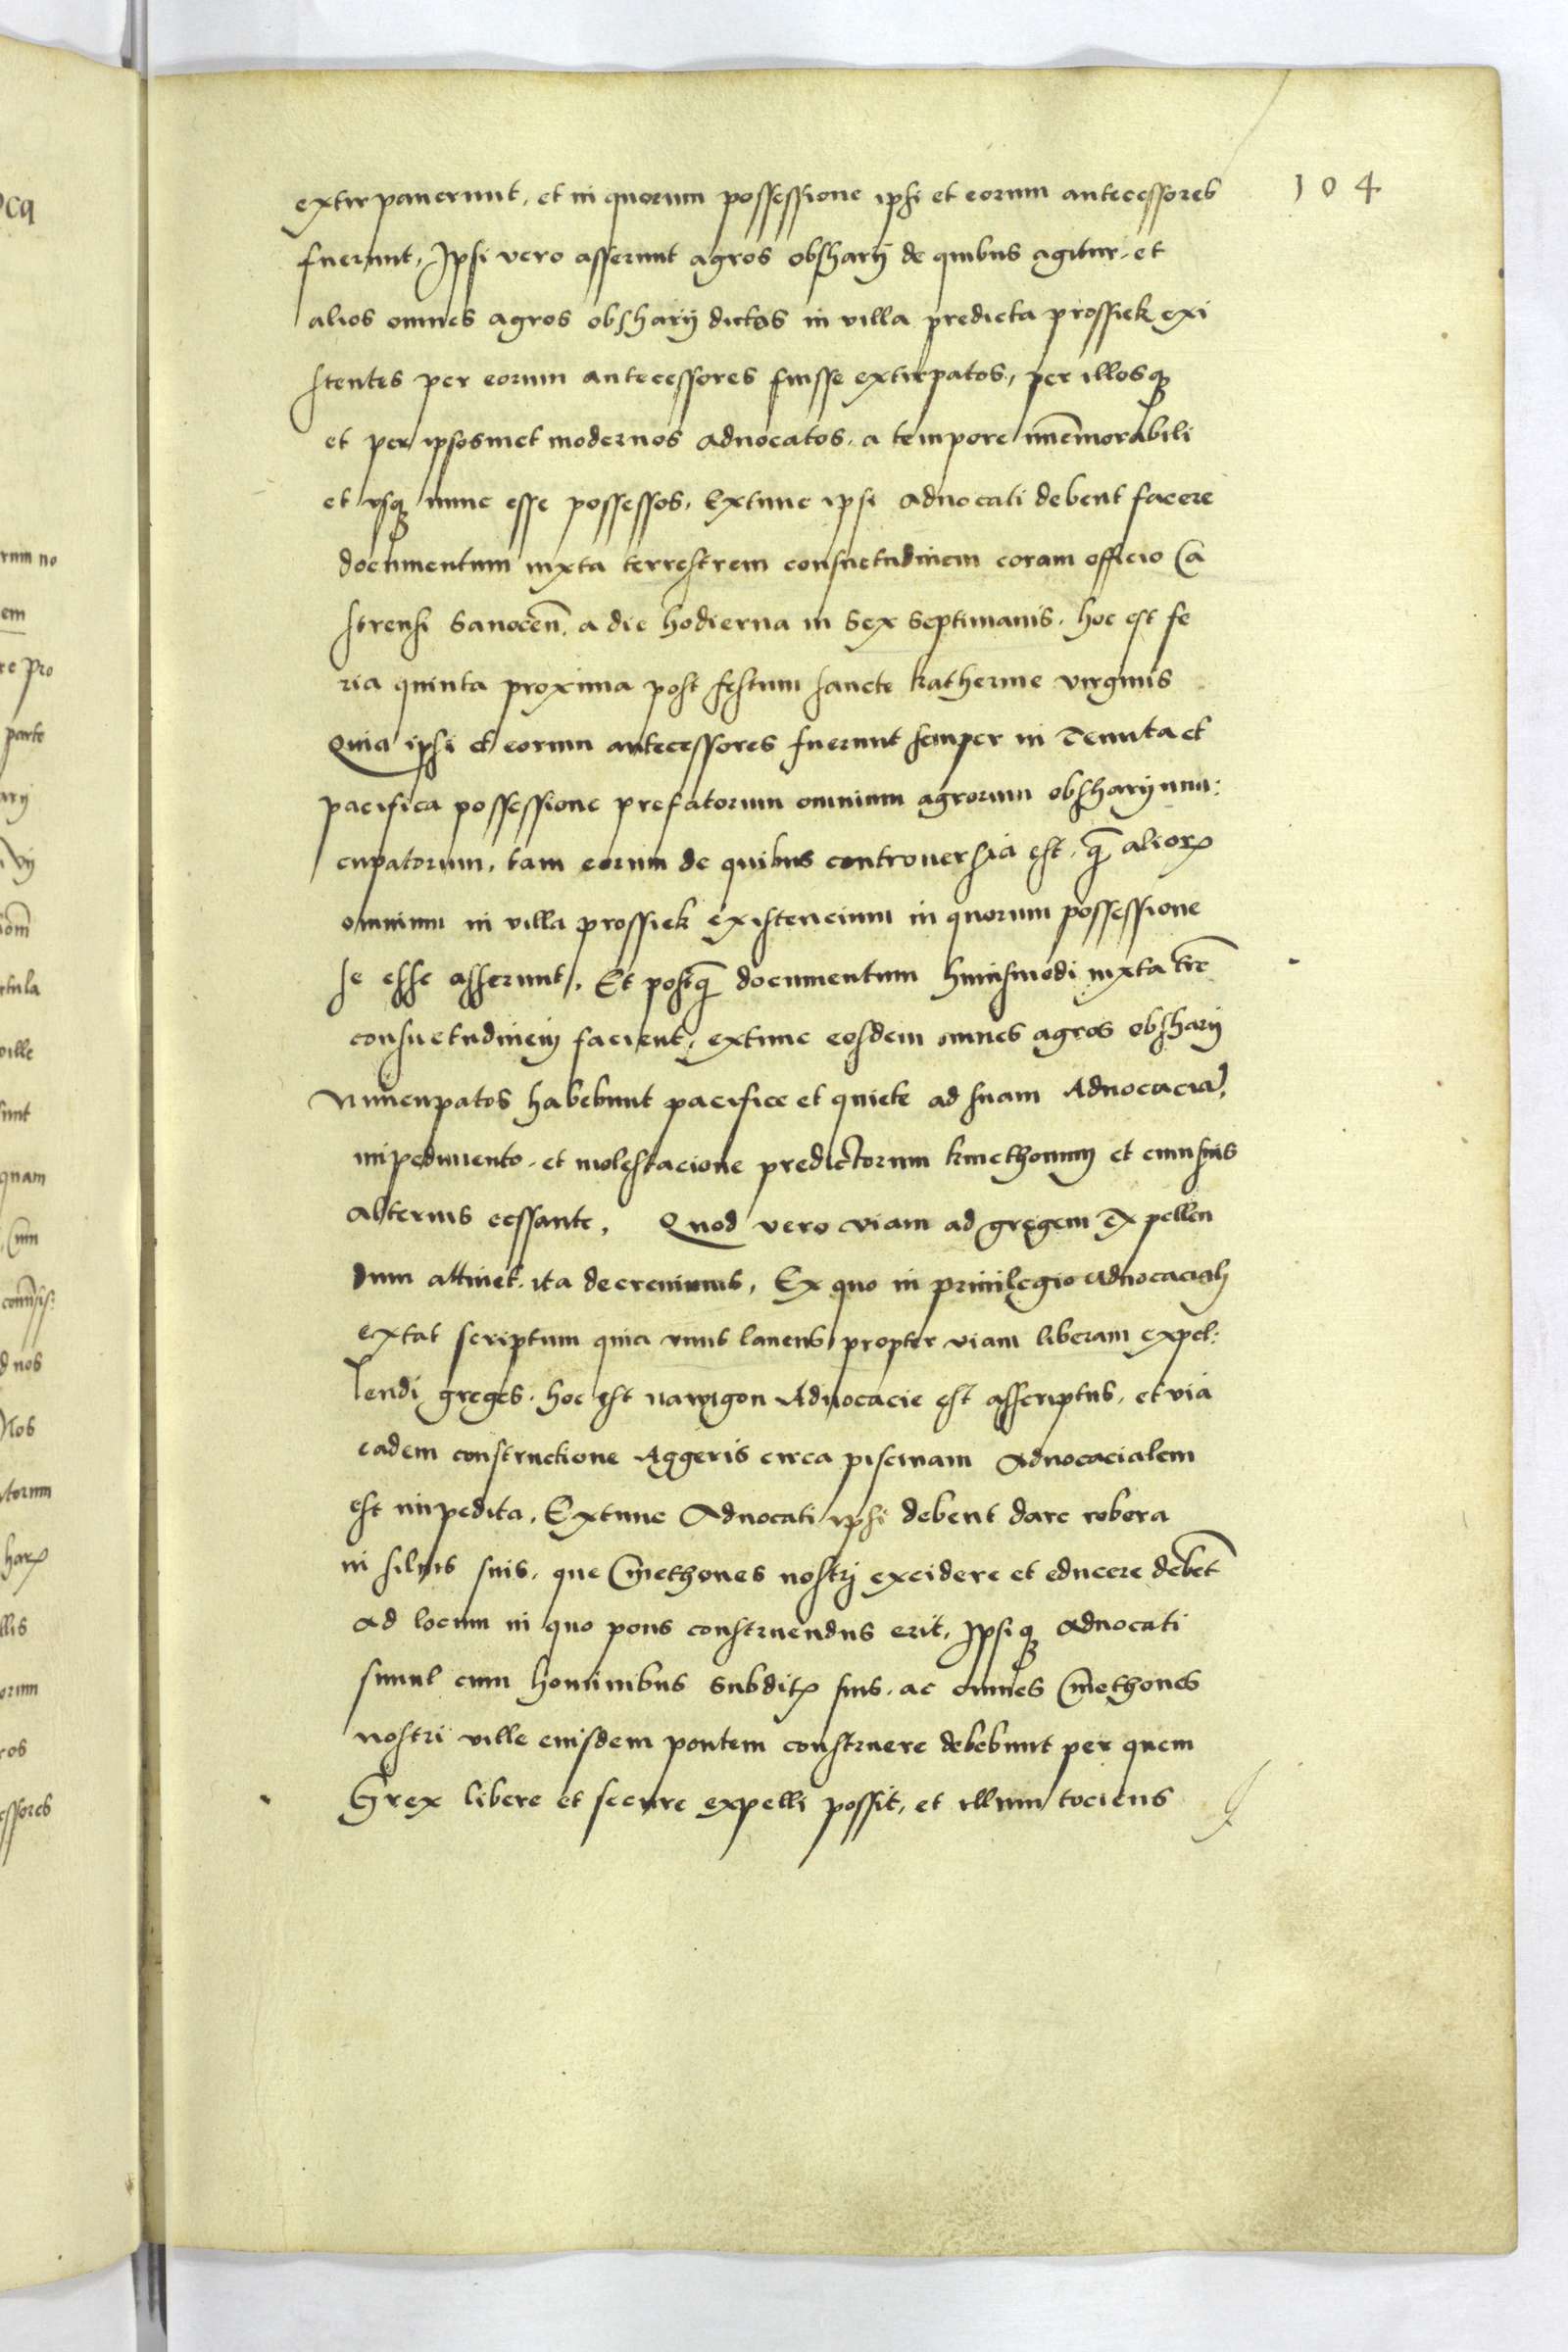 104
extirpauerunt, et in quorum possessione ipsi et eorum antecessores
fuerunt, Ipsi vero asserunt agros obshary de quibus agitur, et
alios omnes agros obshary dictos in villa predicta prossiek exi
stentes per eorum antecessores fuisse extirpatos, per illosq
et per ipsosmet modernos aduocatos, a tempore im̄emorabili
et vsq nunc esse possessos, Extunc ipsi aduocati debent facere
documentum iuxta terrestrem consuetudinem coram officio Ca
strensi Sanocen̄, a die hodierna in sex septimanis, hoc est fe
ria quinta proxima post festum sancte katherine virginis
Quia ipsi et eorum antecessores fuerunt semper in Tenuta et
pacifica possessione prefatorum omnium agrorum obshary nun:
cupatorum, tam eorum de quibus controuersia est, q̄ alioꝝ
omnium in villa prossiek existencium in quorum possessione
se esse asserunt, Et postq̄ documentum huiusmodi iuxta tr̄e
consuetudinem facient, extunc eosdem omnes agros obshary
Nuncupatos habebunt pacifice et quiete ad suam Aduocaciā,
impedimento et molestacione predictorum kmethonum et cuiusuis
alterius cessante, Quod vero viam ad gregem Expellen
dum attinet, ita decreuimus, Ex quo in priuilegio aduocacialj
extat scriptum quia vnus laneus propter viam liberam expel:
lendi greges, hoc est nawigon Aduocacie est asscriptus, et via
eadem constructione Aggeris circa piscinam Aduocacialem
est impedita, Extunc Aduocati ipsi debent dare robora
in siluis suis, que Cm̄ethones nostrj excidere et educere debēt
ad locum in quo pons construendus erit, Ipsiq aduocati
simul cum hominibus subditꝭ suis, ac omnes Cm̄ethones
nostri ville eiusdem pontem construere debebunt per quem
Grex libere et secure expelli possit, et illum tociens